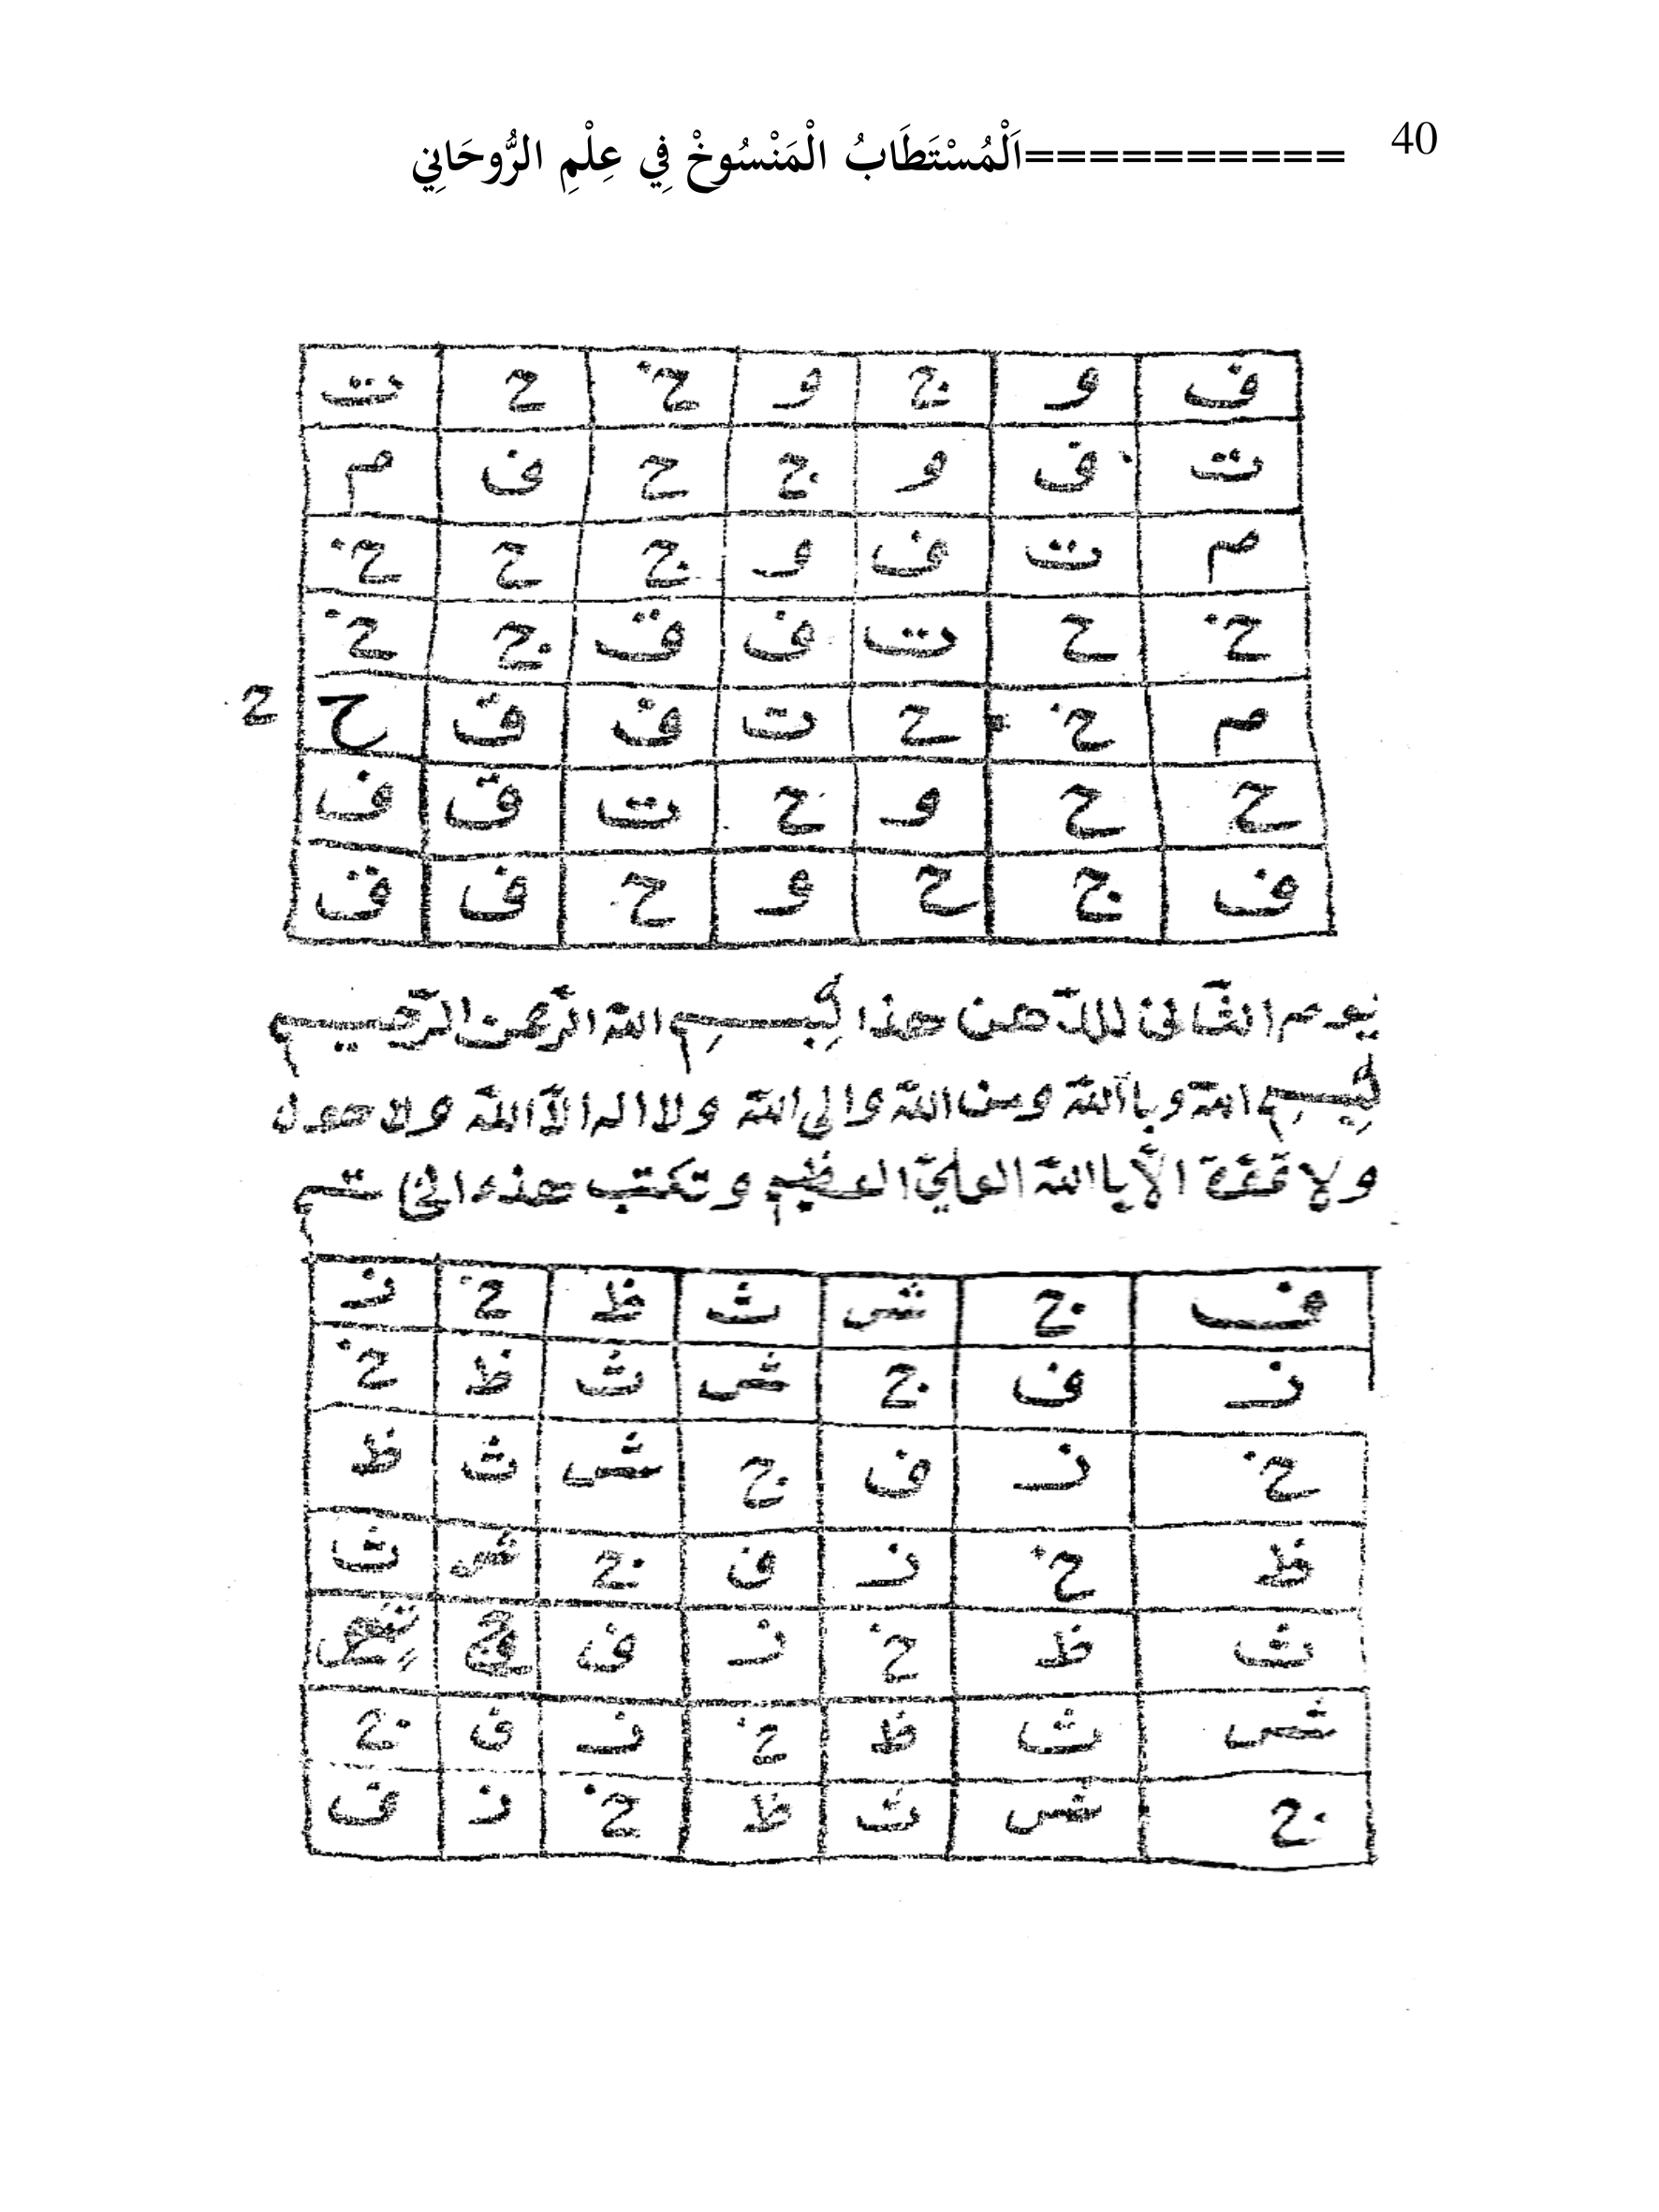 40 ==========اَلْمُسْتَطَابُ الْمَنْسُوخْ فِي عِلْمِ الرُّوحَانِي
ف و ج و خ ح ت
ت ف و ج ح ف م
م ت ف و ج ح خ
خ ح ت ف ق ج خ
م خ ح ت ف ق ح ح
ح ح و ح ت ق ف
ف ج ح و ح ف ق
يوم الثاني للدّهن هذا بِسمِ الله الرّحمن الرّحيم
بِسمِ الله وبا الله ومن الله والى الله ولا اله الّا الله ولا حول
ولا قوّة الّا با الله العليّ العظيم وتكتب هذه الخا تم
ف ج ش ث ظ خ ز
ز ف ج ش ث ظ خ
خ ز ف ج ش ث ظ
ظ خ ز ف ج ش ث
ث ظ خ ز ف
ش ث ظ خ ز ف ج
ج ش ث ظ خ ز ف